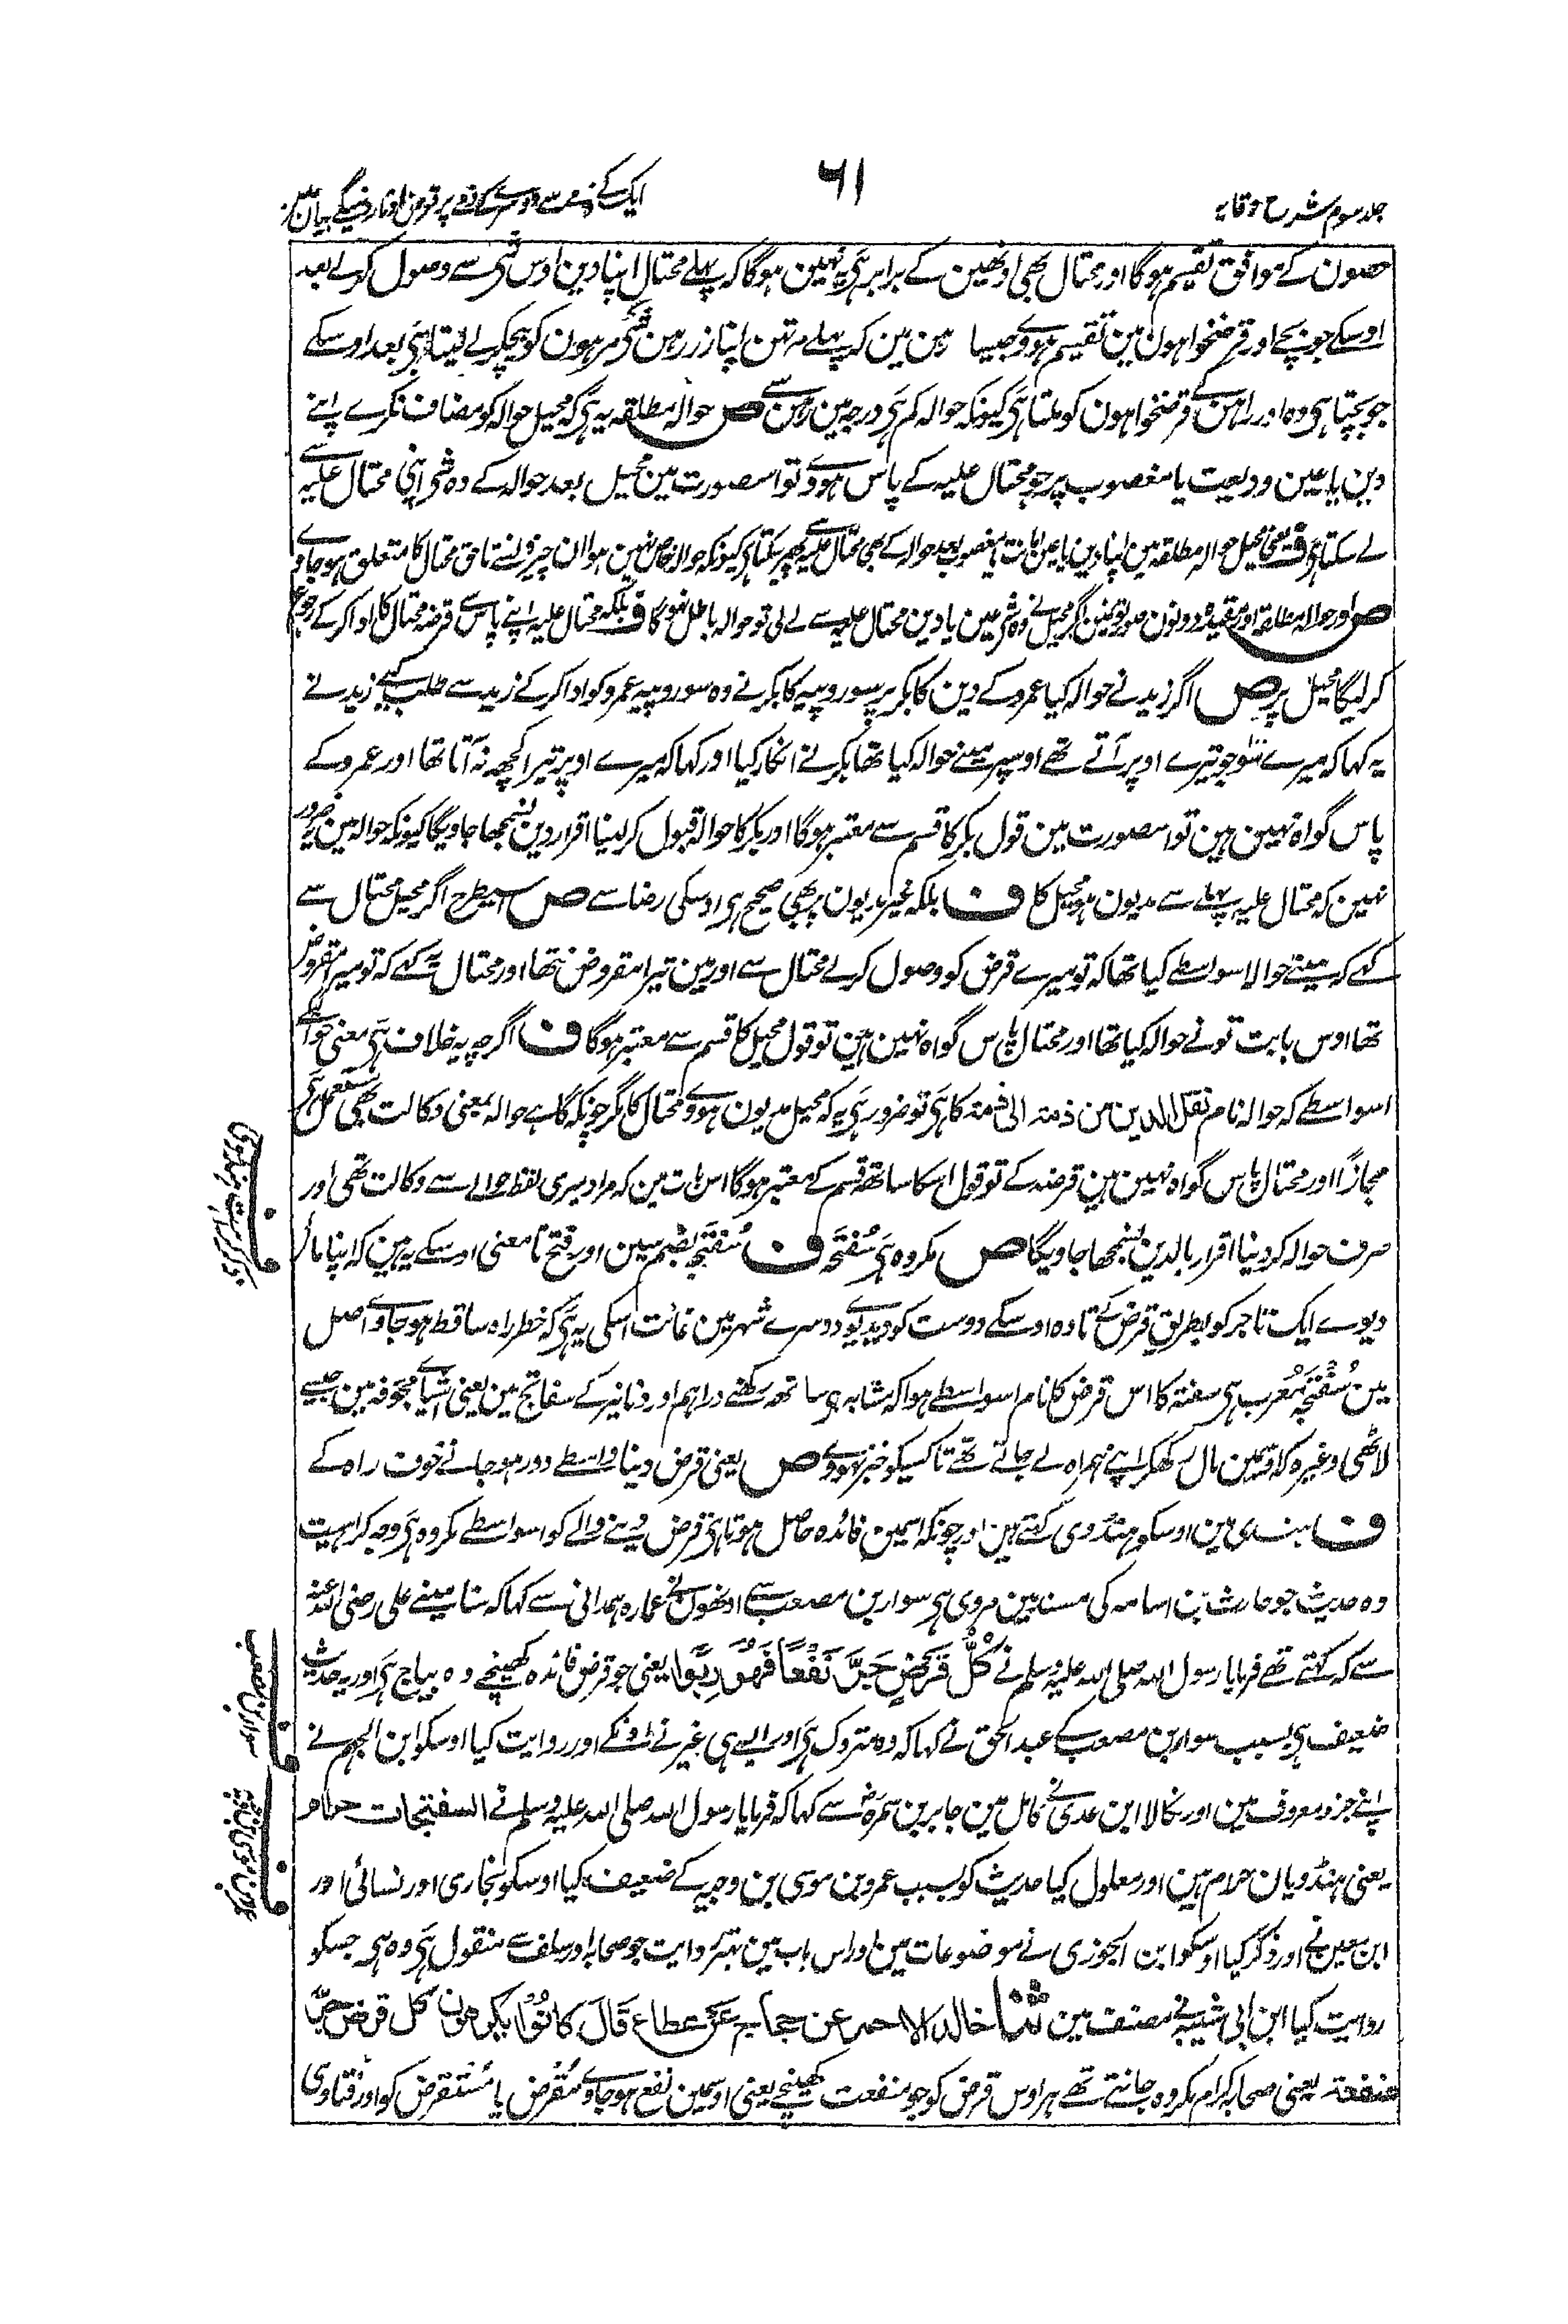 جلد سوم شرح وقایہ
۶۱
ایک کے ذمے سے دوسرے کے ذمے پر قرض اوتار دینیکے بیان مین
حصون کے موافق تقسیم ہوگا اور محتال بھی اونھین کے برابر ہی یہ نہین ہوگا کہ پہلے محتال اپنا دین اوس شی سے وصول کرلے بعد
اوسکے جو بچے اور قرضخواہون مین تقسیم ہووے جیسا رہن مین کہ پہلے مرتہن اپنا زر رہن شی مرہون کو بیچکر لے لیتا ہی بعد اوسکے
جو بچتا ہی وہ اور راہن کے قرضخواہون کو ملتا ہی کیونکہ حوالہ کم ہی درجہ مین رہن سے ص حوالہ مطلقہ یہ ہی کہ محیل حوالہ کو مضاف نکرے اپنے
دین یا عین ودیعت یا مغصوب پر جو محتال علیہ کے پاس ہووے تو اسصورت مین محیل بعد حوالہ کے وہ شی اپنی محتال علیہ سے
لے سکتا ہی ف یعنی محیل حوالہ مطلقہ مین اپنا دین یا عین امانت یا مغصوب بعد حوالہ کے بھی محتال علیہ سے پھیر سکتا ہی کیونکہ حوالہ خاص نہین ہوا ان چیزونسے تا حق محتال کا متعلق ہو جاوے
ص اور حوالہ مطلقہ اور مقیدہ دونون صورتونمین اگر محیل نے وہ شی عین یا دین محتال علیہ سے لے لی تو حوالہ باطل نہوگا ف بلکہ محتال علیہ اپنے پاس سے قرضہ محتال کا ادا کر کے رجوع
کرلیگا محیل پر ص اگر زید نے حوالہ کیا عمرو کے دین کا بکر پر سو روپیہ کا بکر نے وہ سو روپیہ عمرو کو ادا کر کے زید سے طلب کیے زید نے
یہ کہا کہ میرے سو جو تیرے اوپر آتے تھے اوسپر مینے حوالہ کیا تھا بکر نے انکار کیا اور کہا کہ میرے اوپر تیرا کچھ نہ آتا تھا اور عمرو کے
پاس گواہ نہین ہین تو اسصورت مین قول بکر کا قسم سے معتبر ہوگا اور بکر کا حوالہ قبول کرلینا اقرار دین نسمجھا جاویگا کیونکہ حوالہ مین یہ ضرور
نہین کہ محتال علیہ پہلے سے مدیون ہو محیل کا ف بلکہ غیر مدیون پر بھی صحیح ہی اوسکی رضا سے ص اسیطرح اگر محیل محتال سے
کہے کہ مینے حوالا اسواسطے کیا تھا کہ تو میرے قرض کو وصول کرلے محتال سے اور مین تیرا مقروض نتھا اور محتال یہ کہے کہ تو میرا مقروض
تھا اوس بابت تونے حوالہ کیا تھا اور محتال پاس گواہ نہین ہین تو قول محیل کا قسم سے معتبر ہوگا ف اگرچہ یہ خلاف ہی معنی حوالے
اسواسطے کہ حوالہ نام نقل الدین من ذمۃ الی ذمۃ کا ہی تو ضرور ہی یہ کہ محیل مدیون ہووے محتال کا مگر چونکہ گاہے حوالہ بمعنی وکالت بھی مستعمل ہی
مجازًا اور محتال پاس گواہ نہین ہین قرضہ کے تو قول اسکا ساتھ قسم کے معتبر ہوگا اس بات مین کہ مراد میری لفظ حوالے سے وکالت تھی اور
صرف حوالہ کر دینا اقرار بالدین نسمجھا جاویگا ص مکروہ ہی سُفتَجہ ف سُفتَجہ بضم سین اور فتح تا معنی اوسکے یہ ہین کہ اپنا مال
دیوے ایک تاجر کو بطریق قرض کے تا وہ اوسکے دوست کو دیدیوے دوسرے شہر مین غائت اسکی یہ ہی کہ خطر راہ ساقط ہو جاوے اصل
مین سُفْتَجَہ مُعرب ہی سفتہ کا اس قرض کا نام اسواسطے ہوا کہ مشابہ ہی ساتھ رکھنے دراہم اور دنانیر کے سفاتج مین یعنی اشیاے مجوفہ مین جیسے
لاٹھی وغیرہ کہ اوسمین مال رکھکر اپنے ہمراہ لے جاتے تھے تا کسیکو خبر نہووے ص یعنی قرض دینا واسطے دور ہو جانے خوف راہ کے
ف ہندی مین اوسکو ہنڈوی کہتے ہین اور چونکہ اسمین فائدہ حاصل ہوتا ہی قرض دینے والے کو اسواسطے مکروہ ہی وجہ کراہیت
وہ حدیث جو حارث بن اسامہ کی مسند مین مروی ہی سوار بن مصعب سے اونھون نے عمارہ ہمدانی سے کہا کہ سنا مینے علی رضی اللہ عنہ
سے کہ کہتے تھے فرمایا رسول اللہ صلی اللہ علیہ وسلم نے كُلُّ قَرْضٍ جَرَّ نَفْعًا فَهُوَ رِبٰوا یعنی جو قرض فائدہ کھینچے وہ بیاج ہی اور یہ حدیث
ضعیف ہی بسبب سوار بن مصعب کے عبدالحق نے کہا کہ وہ متروک ہی اور ایسے ہی غیر نے اونکے اور روایت کیا اوسکو ابن الجہم نے
اپنے جزو معروف مین اور نکالا ابن عدی نے کامل مین جابر بن سمرہ سے کہا کہ فرمایا رسول اللہ صلی اللہ علیہ وسلم نے السفتجات حرام
یعنی ہنڈویان حرام ہین اور معلول کیا حدیث کو بسبب عمرو بن موسی بن وجیہ کے ضعیف کیا اوسکو بخاری اور نسائی اور
ابن معین نے اور ذکر کیا اوسکو ابن الجوزی نے موضوعات مین اور اس باب مین بہتر روایت جو صحابہ اور سلف سے منقول ہی وہ ہی جسکو
روایت کیا ابن ابی شیبہ نے مصنف مین ثنا خالد الاحمر عن حجاج عن عطاء قَالَ كَانُوْا يكرهون كل قرض جرّ
منفعة یعنی صحابہ کرام مکروہ جانتے تھے ہر اوس قرض کو جو منفعت کھینچے یعنی اوسمین نفع ہو جاوے مُقرض یا مستقرض کو اور فتاوی